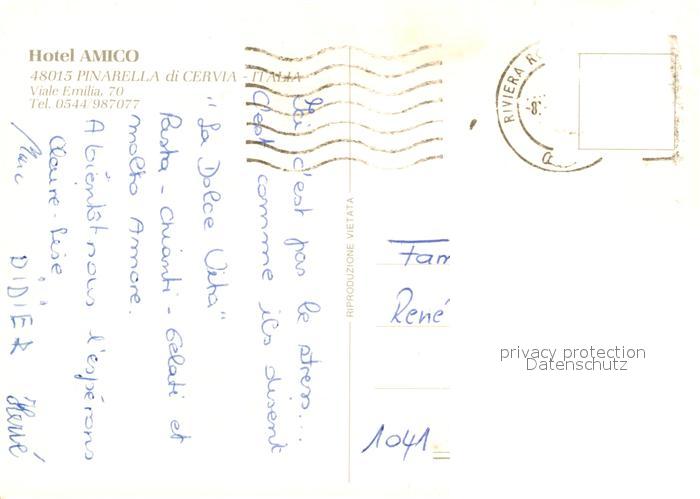 Hotel AMICO
48015 PINARELLA di CERVIA - ITALIA
Viale Emilia, 70
Tel. 0544/987077
Ici c'est pas le stress...
C'est comme ils disent
"La Dolce Vita"
Pasta - Chianti - Gelati et
molto Amore.
A bientôt nous l'espérons
Claire-Lise
Marc
DIDIER Hervé
RIPRODUZIONE VIETATA
RIVIERA
Fam
René
1041
privacy protection
Datenschutz